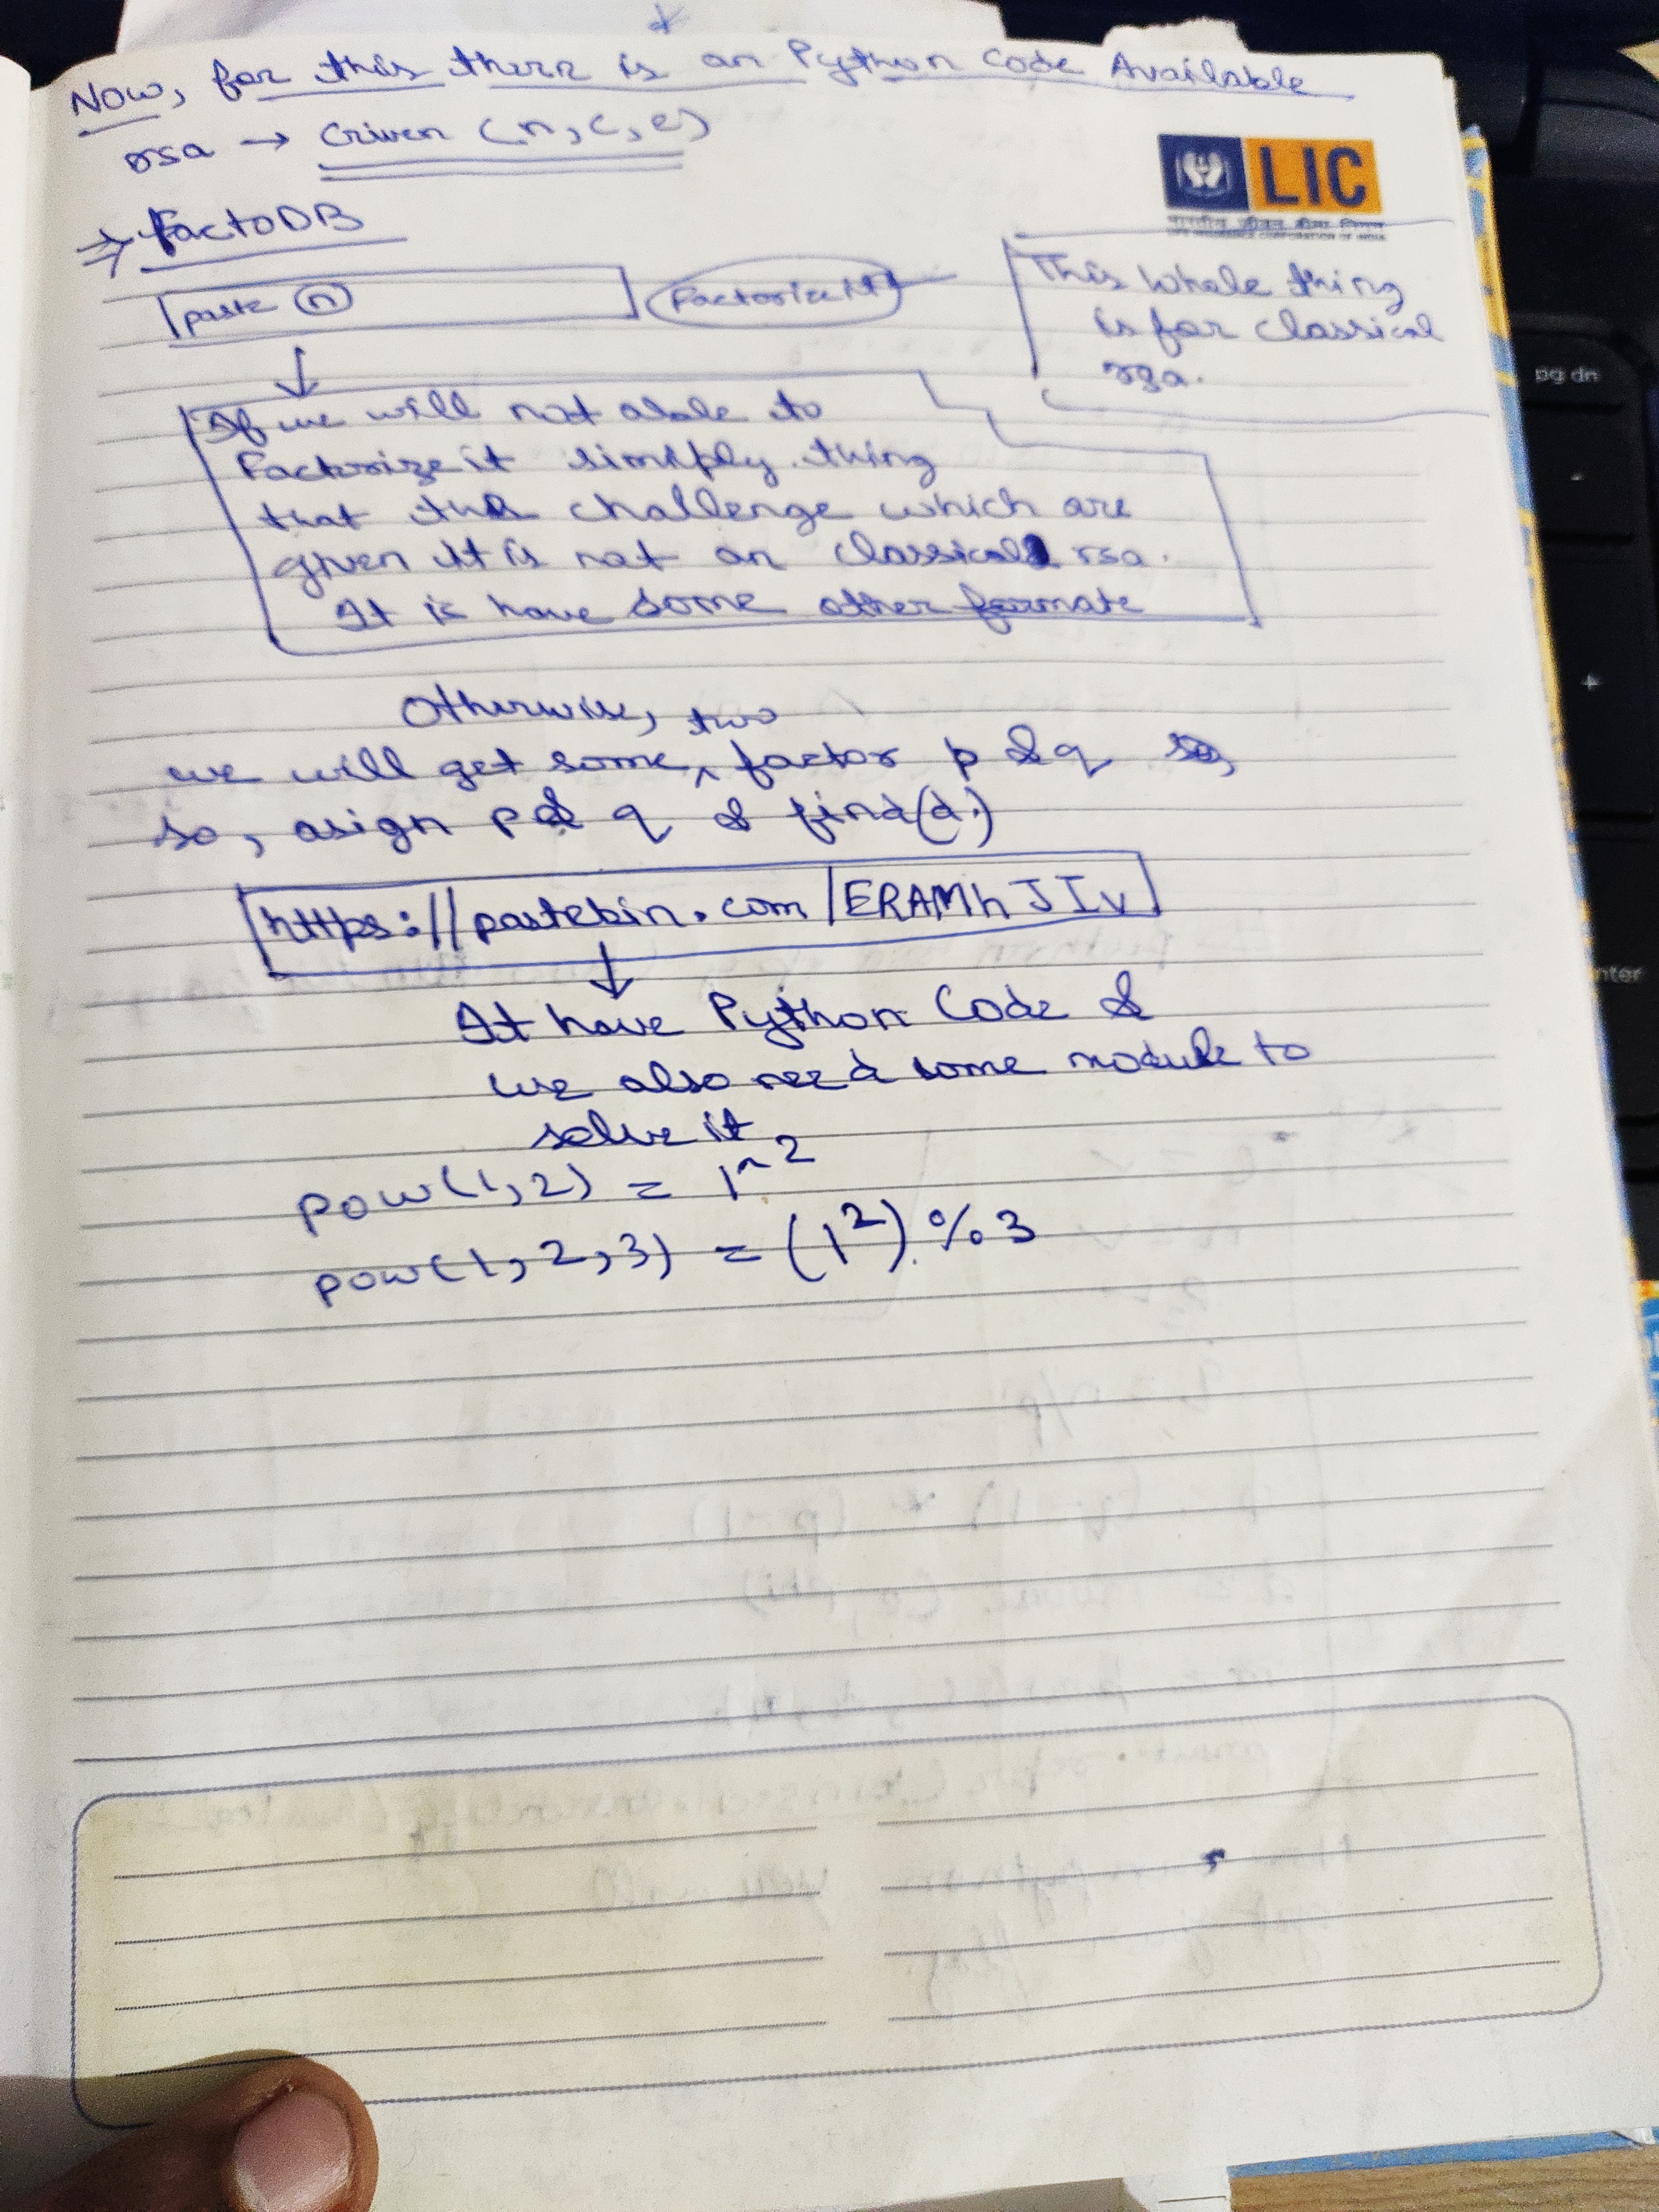 Now, for this there is an Python Code Available
rsa → Given (n, c, e)
LIC
भारतीय जीवन बीमा निगम
LIFE INSURANCE CORPORATION OF INDIA
⇒ FactoDB
paste n Factorize it
This whole thing
is for classical
rsa.
If we will not able to
Factorize it simiply thing
that the challenge which are
given it is not an classical rsa.
It is have some other formate
Otherwise, two
we will get some ^ factor p & q so,
so, asign p & q & find(d.)
https://pastebin.com/ERAMhJIv
↓
It have Python Code &
we also need some module to
solve it.
pow(1,2) = 1^2
pow(1,2,3) = (1²) % 3
pg dn
-
+
nter